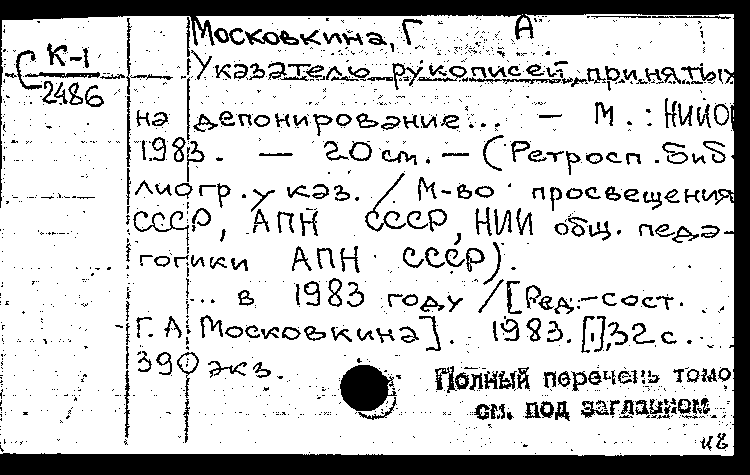 Московкина, Г А
К-1
Указатель рукописей, принятых
2486
на депонирование... — М.: НИИО
1983. — 20 см. — (Ретросп. биб-
лиогр. указ. / М-во просвещения
СССР, АПН СССР, НИИ общ. педа-
гогики АПН СССР).
... в 1983 году / [Ред.-сост.
Г. А. Московкина]. 1983. [1], 32 с.
390 экз.
Полный перечень томо
см. под заглавием